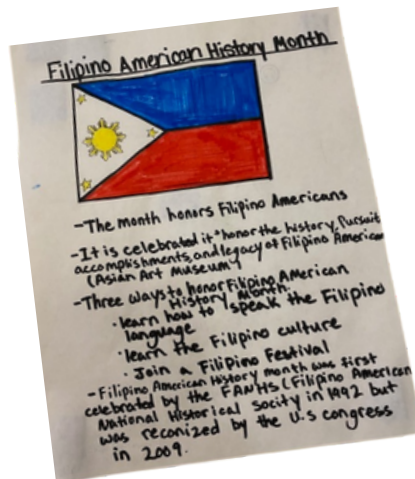 Filipino American History Month
-The month honors Filipino Americans
-It is celebrated it "honor the history, Pursuit
accomplishments, and legacy of Filipino American
(Asian Art Museum)
-Three ways to honor Filipino American
History Month.
·learn how to speak the Filipino
language
·learn the Filipino culture
·Join a Filipino Festival
-Filipino American History month was first
celebrated by the FANHS (Filipino American
National Historical socity in 1992 but
was reconized by the U.S congress
in 2009.